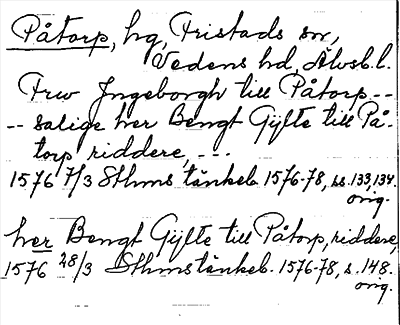 Påtorp, hg, Fristads sn,
Vedens hd, Älvsb. l.
Frw Ingeborgh till Påtorp --
-- salige her Bengt Gijlte till På-
torp riddere, ---
1576 7/3 Sthms tänkeb. 1576-78, ss. 133, 134.
orig.
her Bengt Gijlte till Påtorp, riddere,
1576 28/3 Sthms tänkeb. 1576-78, s. 148.
orig.